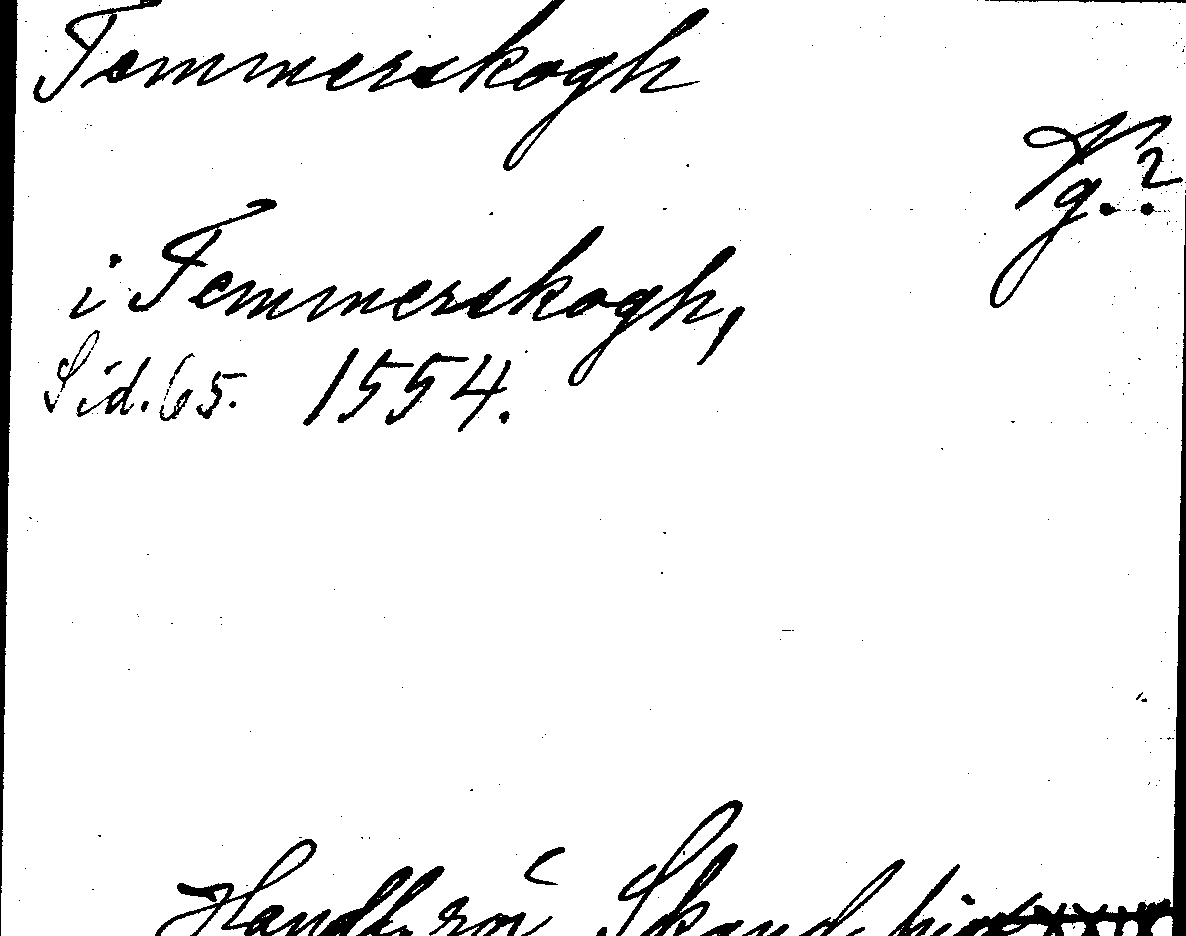 Temmerskogh
Vg.?
i Temmerskogh,
Sid. 65. 1554.
Handl. rör Skand. hist